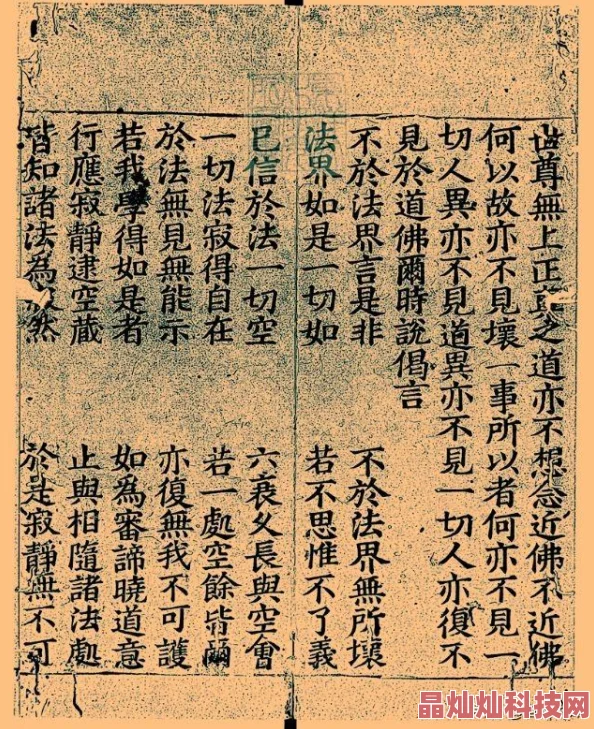 世尊無上正真之道亦不想念近佛不近佛
何以故亦不見壞一事所以者何亦不見一
切人異亦不見道異亦不見一切人亦復不
見於道佛爾時說偈言
不於法界言是非　不於法界無所壞
法界如是一切如　若不思惟不了義
已信於法一切空　六衰久長與空會
一切法寂得自在　若一處空餘皆爾
於法無見無能示　亦復無我不可護
若我學得如是者　如為審諦曉道意
行應寂靜逮空藏　止與相隨諸法處
皆知諸法為然　於是寂靜無不可
晶灿灿科技网